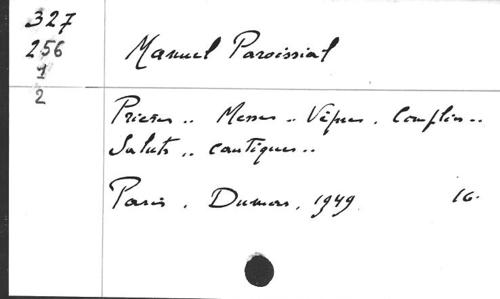 327
256
1
2
Manuel Paroissial
Prières .. Messes .. Vêpres . Complies ..
Saluts .. cantiques ..
Paris . Dumas , 1949 16.